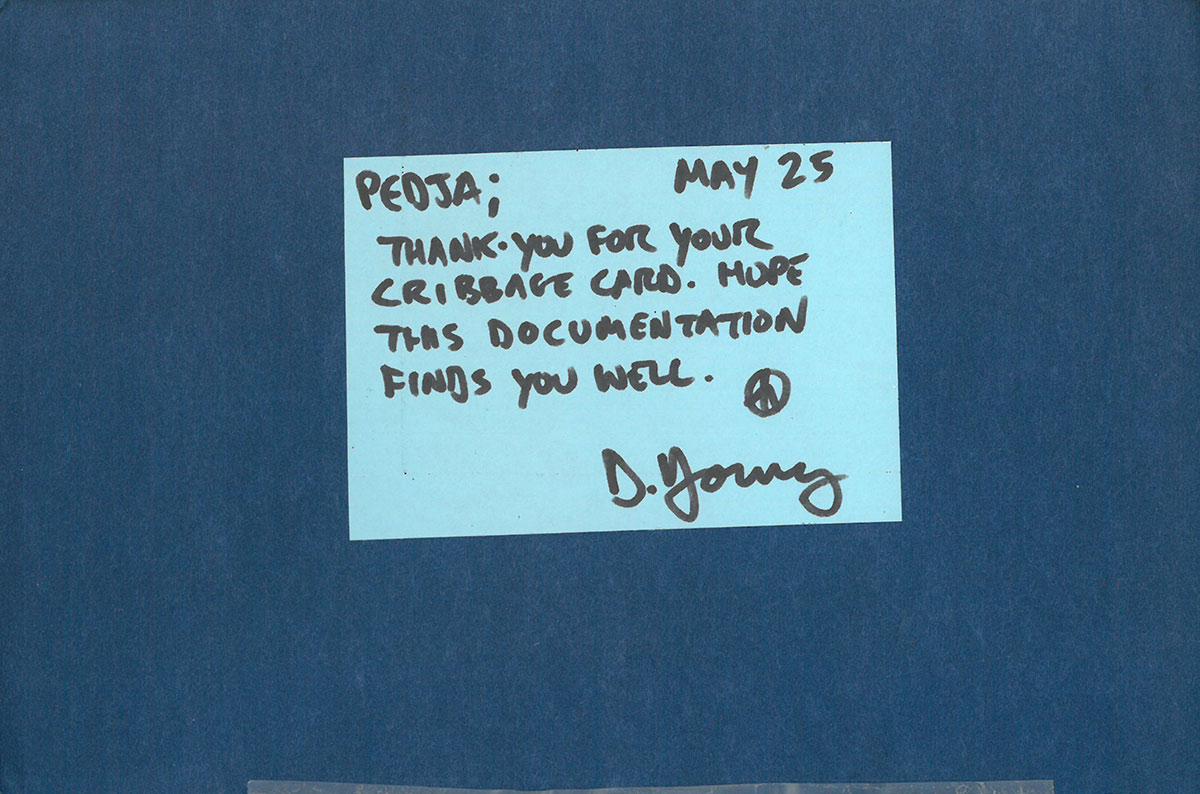 PEDJA; MAY 25
THANK-YOU FOR YOUR
CRIBBAGE CARD. HOPE
THIS DOCUMENTATION
FINDS YOU WELL.
D. Young